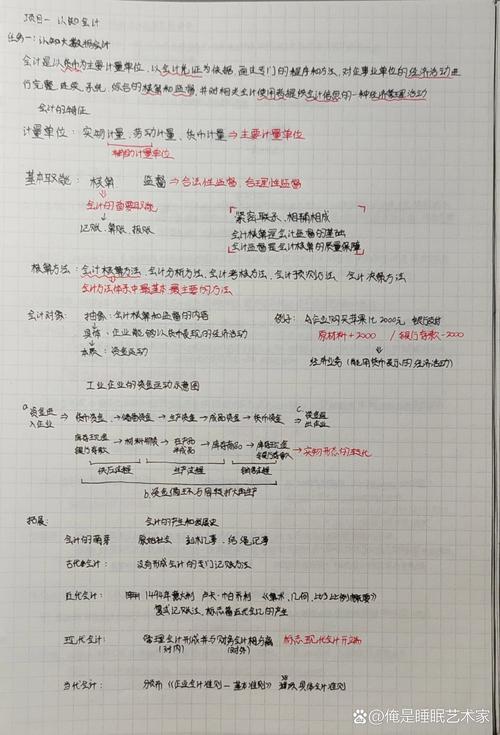 项目一 认知会计
任务一:认知大数据会计
会计是以货币为主要计量单位,以会计凭证为依据,通过专门的程序和方法,对企事业单位的经济活动进
行完整、连续、系统、综合的核算和监督,并对相关会计使用者提供会计信息的一种经济管理活动
会计的特征
计量单位: 实物计量、劳动计量、货币计量⇒主要计量单位
辅助计量单位
基本职能: 核算 监督⇒合法性监督、合理性监督
会计的首要职能
记账、算账、报账
紧密联系、相辅相成
会计核算是会计监督的基础
会计监督是会计核算的质量保障
核算方法: 会计核算方法、会计分析方法、会计考核方法、会计预测方法、会计决策方法
会计方法体系中最基本最主要的方法
会计对象: 抽象:会计核算和监督的内容
具体:企业能够以货币表现的经济活动
本质:资金运动
例子: A企业购买苹果花2000元 银行支付
原材料+2000 / 银行存款-2000
经济业务(能用货币表示的经济活动)
工业企业的资金运动示意图
a.资金进入企业 ⇒ 货币资金 → 储备资金 → 生产资金 → 成品资金 → 货币资金 ⇒ c.资金退出企业
库存现金 银行存款 → 材料物资 → 在产品 半成品 → 库存商品 → 库存现金 银行存款 ⇒ 实物形态的转化
供应过程 生产过程 销售过程
b.资金循环与周转扩大再生产
拓展: 会计的产生和发展史
会计的萌芽 原始社会 刻木记事、结绳记事
古代会计: 没有形成会计的专门记账方法
近代会计: 1494年意大利 卢卡·帕乔利 《算术、几何、比与比例概要》
复式记账法,标志着近代会计的产生
现代会计: 管理会计形成并与财务会计相分离 标志现代会计开端
(对内) (对外)
当代会计: 颁布《企业会计准则—基本准则》 38 具体会计准则
@俺是睡眠艺术家